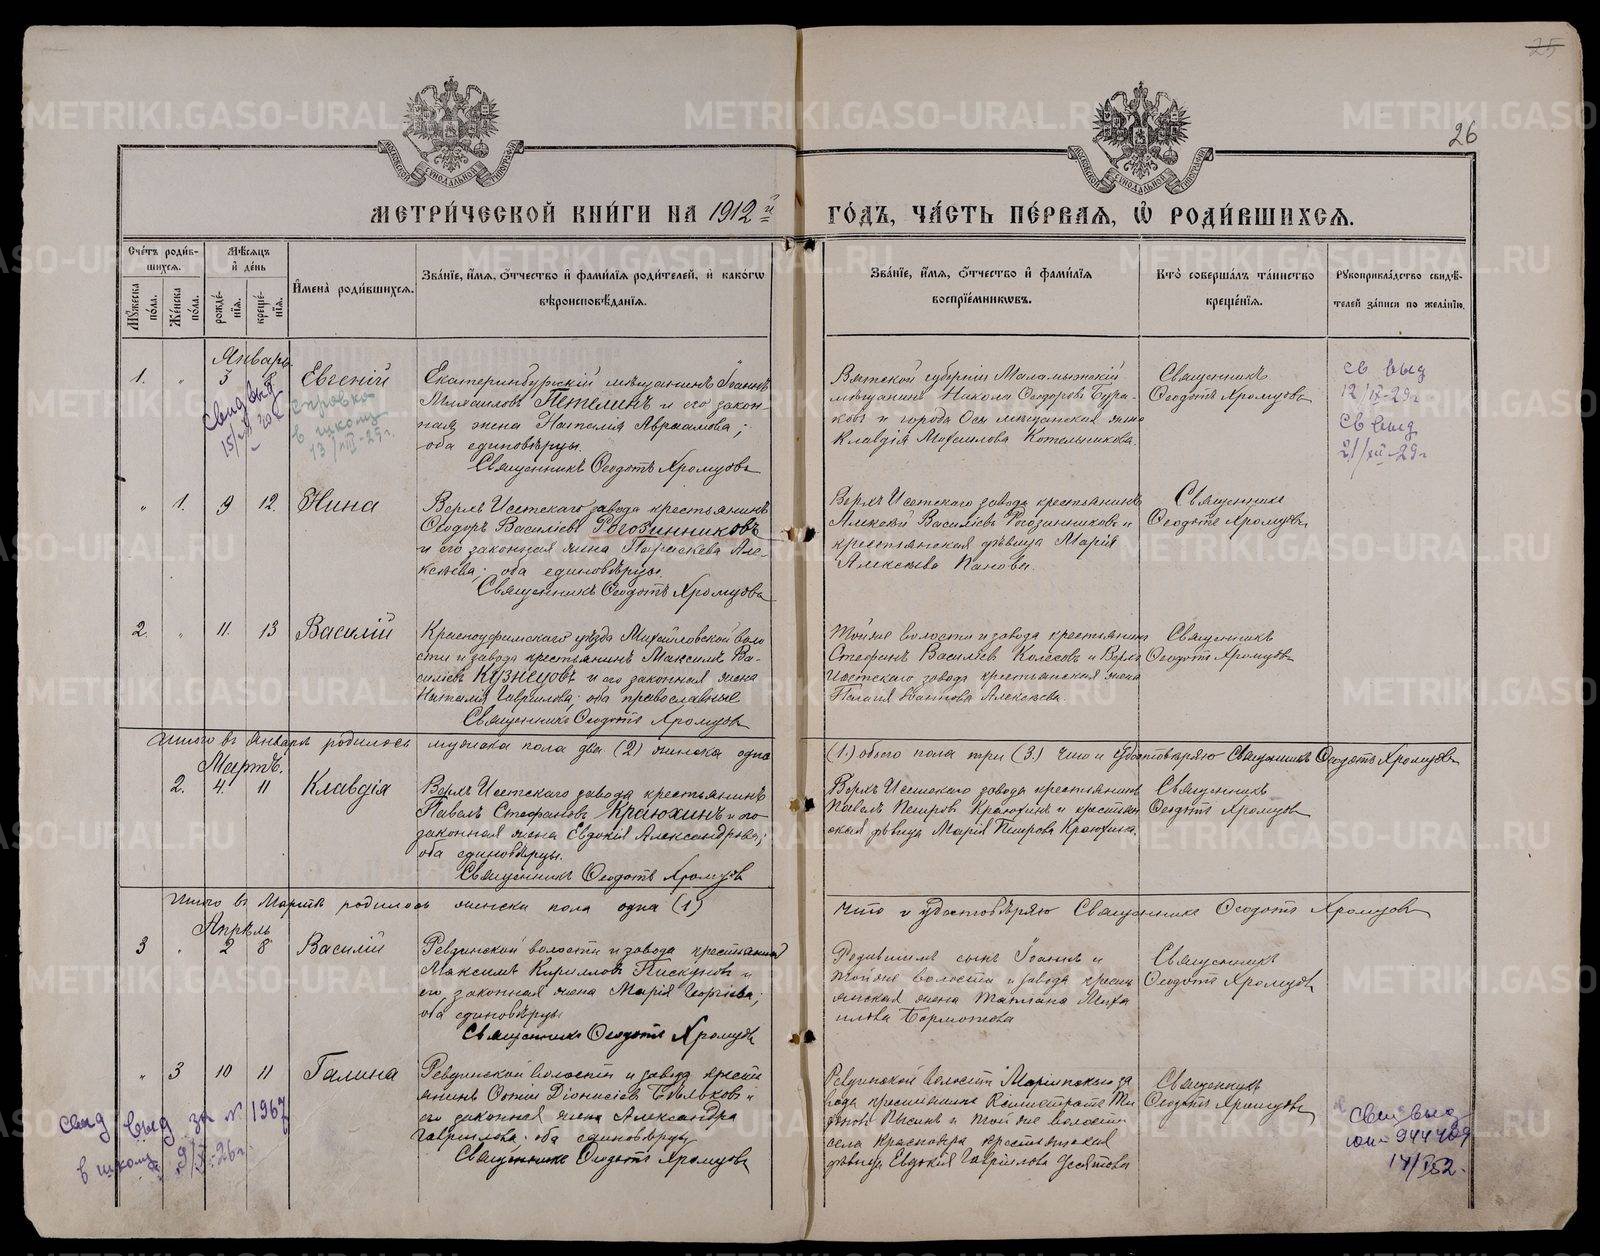 25
26
МЕТРИ́ЧЕСКОЙ КНИ́ГИ НА 1912 й
ГО́ДЪ, ЧА́СТЬ ПЕ́РВАЯ, Ѡ РОДИ́ВШИХСЯ.
Сче́тъ роди́в-
шихся.
Мѣ́сяцъ
и де́нь
Му́жеска по́ла.
Же́нска по́ла.
рожде́-
нія.
креще́-
нія.
Имена̀ роди́вшихся.
Зва́ніе, и́мя, о́тчество и фами́лія роди́телей, и како́гѡ
вѣроисповѣ́данія.
Зва́ніе, и́мя, о́тчество и фами́лія
воспріе́мниковъ.
Кто̀ соверша́лъ та́инство
креще́нія.
Рукоприкла́дство свидѣ́-
телей за́писи по жела́нію.
Январь
1. " 5 8 Евгеній
Екатеринбургскій мѣщанинъ Іоаннъ
Михаиловъ Петелинъ и его закон-
ная жена Наталія Авраамова;
оба единовѣрцы.
Священникъ Ѳеодотъ Хромцовъ
Вятской губерніи Малмыжскій
мѣщанинъ Никола Ѳеодоровъ Бура-
ковъ и города Осы мѣщанская жена
Клавдія Михаилова Котельникова.
Священникъ
Ѳеодотъ Хромцовъ
св выд
12/IX-29г
св выд
21/XII-29г
справка
в школу
13/VIII-29г.
" 1. 9 12. Нина
Верхъ Исетскаго завода крестьянинъ
Ѳеодоръ Василіевъ Рогозинниковъ
и его законная жена Параскева Але-
ксѣева; оба единовѣрцы.
Священникъ Ѳеодотъ Хромцовъ
Верхъ Исетскаго завода крестьянинъ
Алексѣй Василіевъ Рогозинниковъ и
крестьянская дѣвица Марія
Алексѣева Панова.
Священникъ
Ѳеодотъ Хромцовъ
2. " 11. 13 Василій
Красноуфимскаго уѣзда Михайловской воло
сти и завода крестьянинъ Максимъ Ва-
силіевъ Кузнецовъ и его законная жена
Наталія Гавриилова; оба православные
Священникъ Ѳеодотъ Хромцовъ
Тойже волости и завода крестьянинъ
Стефанъ Василіевъ Колесовъ и Верхъ
Исетскаго завода крестьянская жена
Пелагія Алексѣева.
Священникъ
Ѳеодотъ Хромцовъ
Итого въ Январѣ родилось мужеска пола два (2) женска одна
(1) обоего пола три (3.) что и удостовѣряю Священникъ Ѳеодотъ Хромцовъ
Мартъ.
2. 4. 11 Клавдія
Верхъ Исетскаго завода крестьянинъ
Павелъ Стефановъ Краюхинъ и его
законная жена Евдокія Александрова;
оба единовѣрцы.
Священникъ Ѳеодотъ Хромцовъ
Верхъ Исетскаго завода крестьянинъ
Павелъ Петровъ Краюхинъ и крестьян
ская дѣвица Марія Петрова Краюхина.
Священникъ
Ѳеодотъ Хромцовъ
Итого въ Мартѣ родилось женска пола одна (1)
что и удостовѣряю Священникъ Ѳеодотъ Хромцовъ
Апрѣль
3 " 2 8 Василій
Ревдинской волости и завода крестьянинъ
Максимъ Кирилловъ Пискуновъ и
его законная жена Марія Георгіева;
оба единовѣрцы
Священникъ Ѳеодотъ Хромцовъ
Родившемъ сынъ Іоаннъ и
тойже волости и завода крестья
янская жена Татіана Миха
илова Бормотова
Священникъ
Ѳеодотъ Хромцовъ
" 3 10 11 Галина
Ревдинской волости и завода крестья
янинъ Діонисіевъ Бѣльковъ и
его законная жена Александра
Гавриилова; оба единовѣрцы
Священникъ Ѳеодотъ Хромцовъ
Ревдинской волости Маріинскаго за
вода крестьянинъ
и той же волости
села Краснояра крестьянская
дѣвица Евдокія Гавриилова Десятова
Священникъ
Ѳеодотъ Хромцовъ
свид выд за № 1967
в школу 9/IX-26г.
свид выд
14/I52.
METRIKI.GASO-URAL.RU